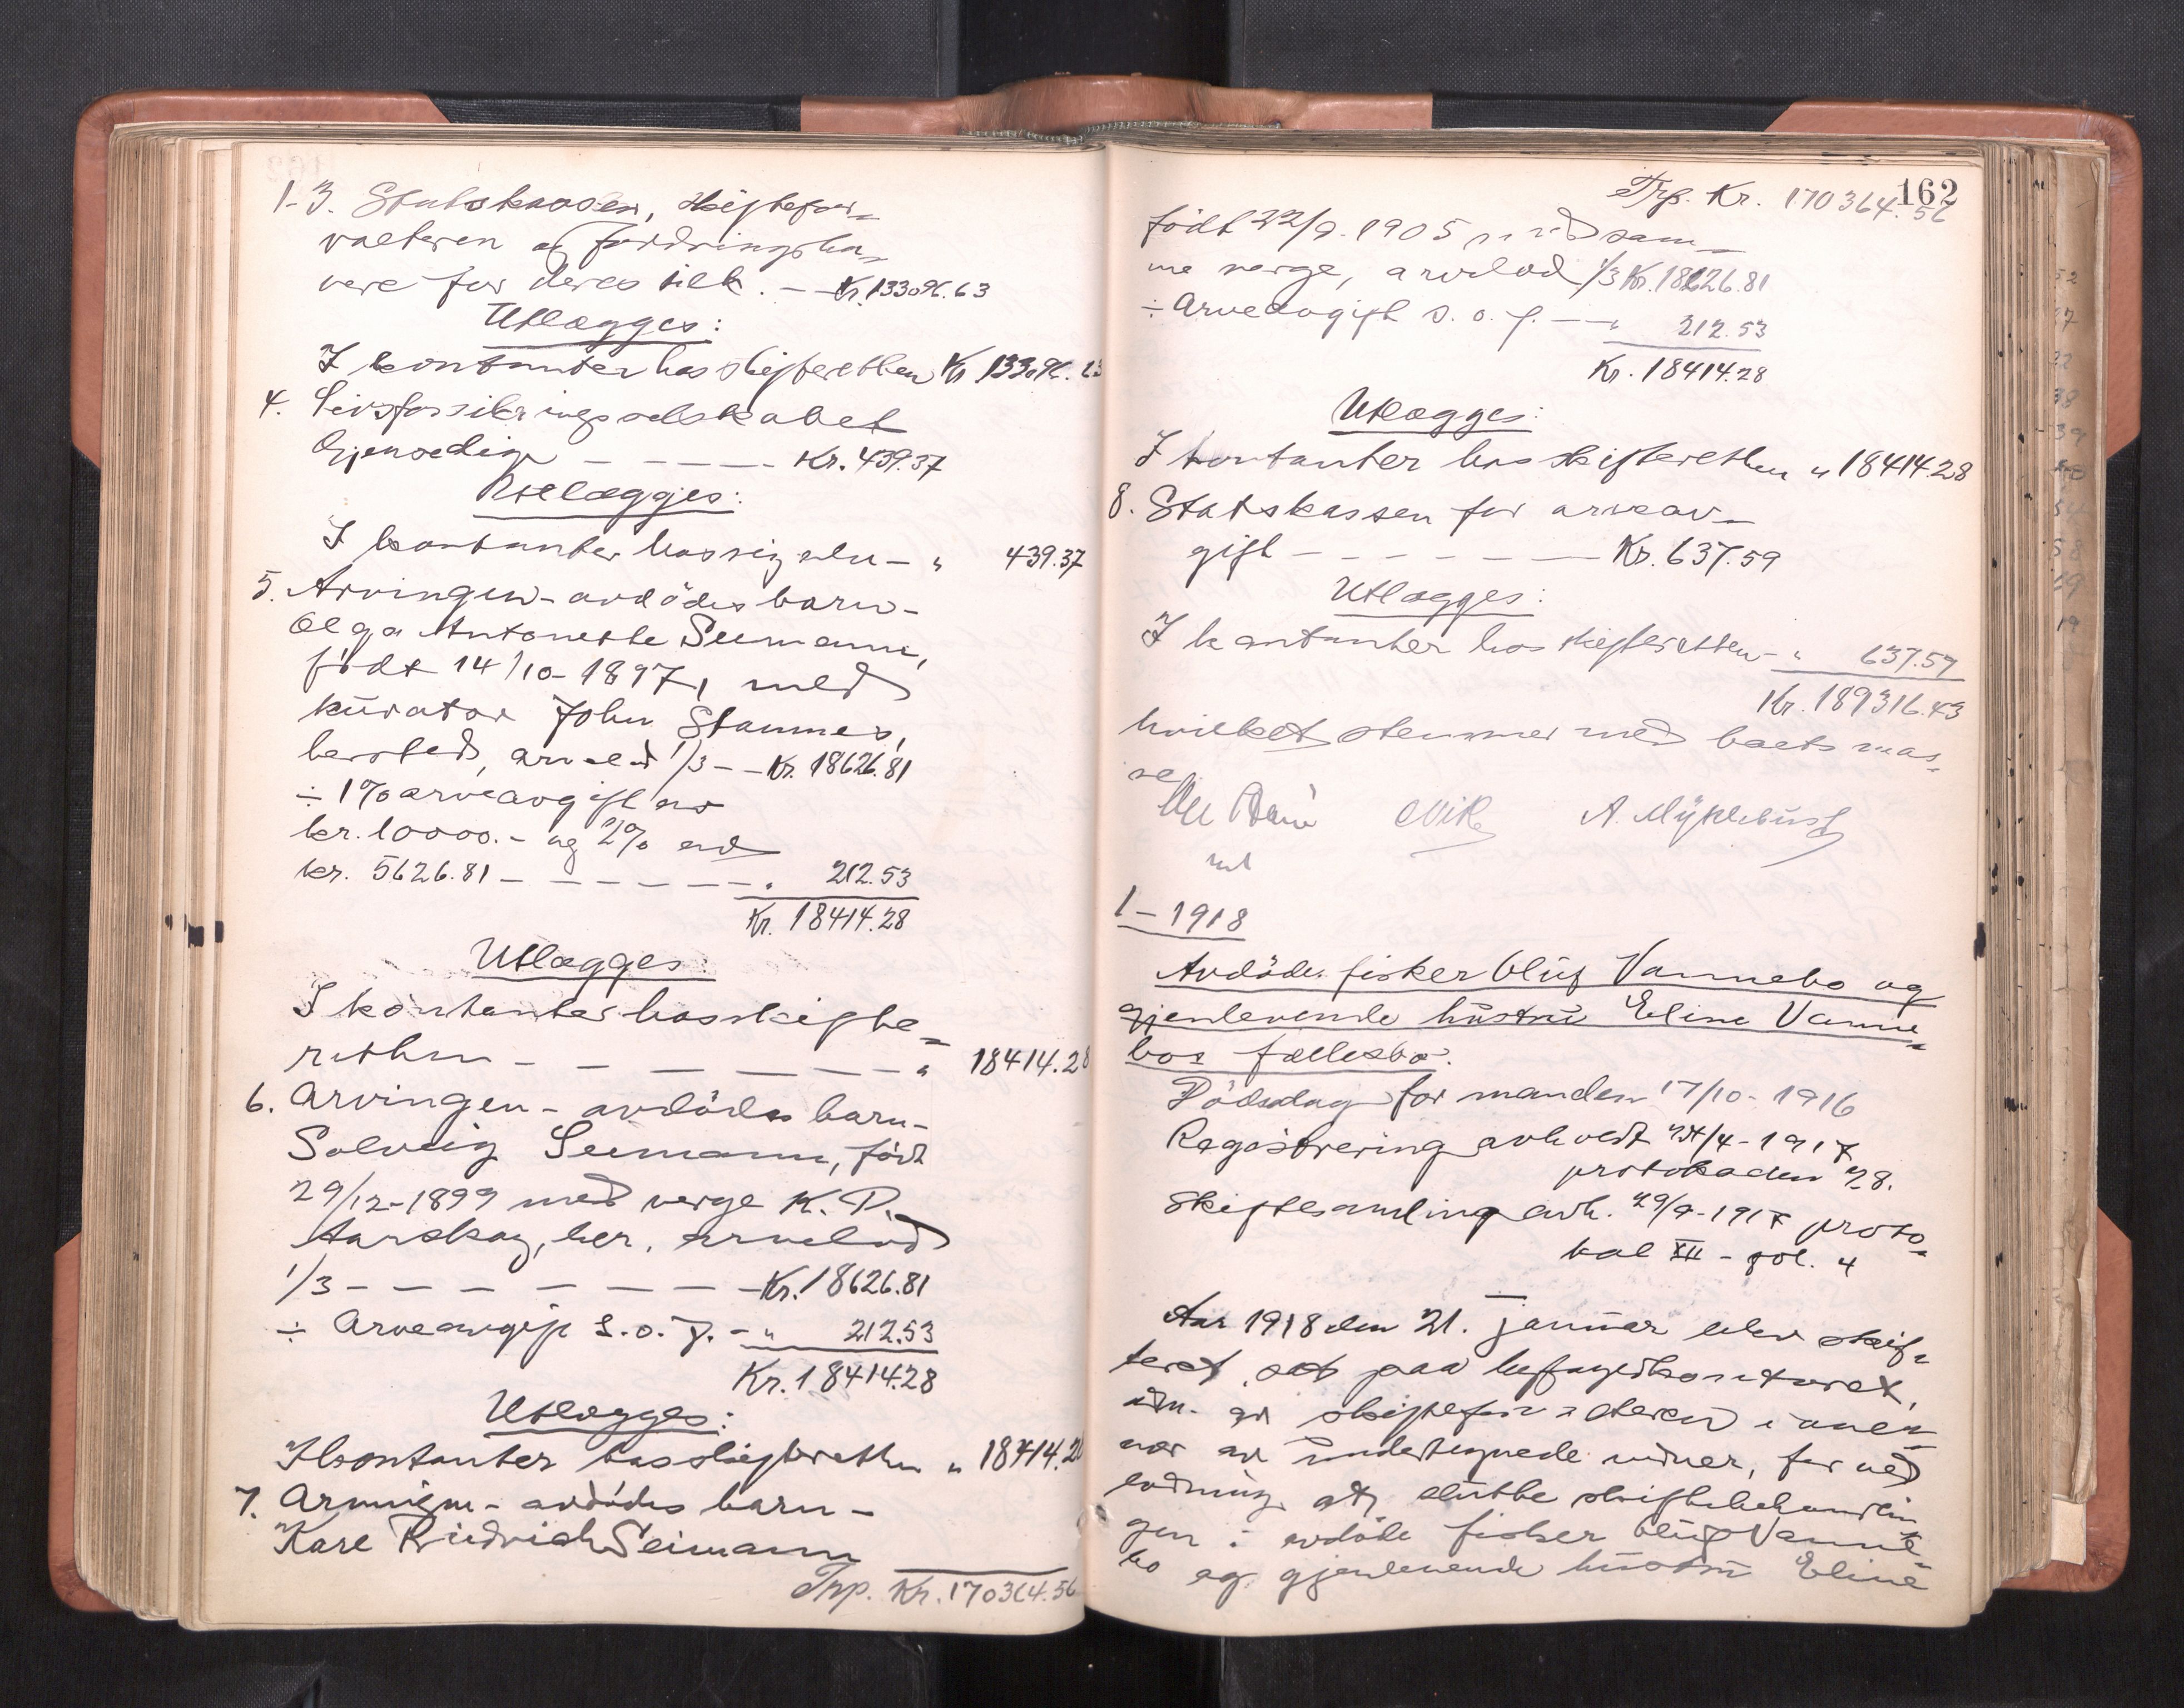 1-3. Statskassen, skiftefor-
valteren og fordringsha-
vere for deres tilk. — Kr. 133096.63
Utlægges:
I kontanter hos skifteretten Kr 133096.63
4. Livsforsikringsselskabet
Gjensedig — — — Kr. 439.37
Utlægges:
I kontanter hos sig selv — " 439.37
5. Arvingen - avdødes barn -
Olga Antonette Seemann,
født 14/10-1897, med
kurator John Stammes,
hersteds, arvelod 1/3 — Kr. 18626.81
÷ 1% arveavgift av
kr. 10000.- og 2% av
kr. 5626.81 — — — " 212.53
Kr. 18414.28
Utlægges:
I kontanter hos skifte-
retten — — — " 18414.28
6. Arvingen - avdødes barn -
Solveig Seemann, født
29/12-1899 med verge K. P.
Aarskog, her. arvelod
1/3 — — — Kr. 18626.81
÷ Arveavgift s.o.f. - " 212.53
Kr. 18414.28
Utlægges:
I kontanter hos skifteretten " 18414.28
7. Arvingen - avdødes barn -
Karl Fredrich Seimann
Trp. Kr. 170364.56
162
Trp. Kr. 170364.56
født 22/9-1905 med sam-
me verge, arvelod 1/3 Kr. 18626.81
÷ Arveavgift s.o.f. — " 212.53
Kr. 18414.28
Utlægges:
I kontanter hos skifteretten " 18414.28
8. Statskassen for arveav-
gift — — — Kr. 637.59
Utlægges:
I kontanter hos skifteretten - " 637.59
Kr. 189316.43
hvilket stemmer med boets mas-
se
A. Myklebust
1-1918
Avdøde fisker Oluf Vannebo og
gjenlevende hustru Eline Vanne-
bos fællesbo.
Dødsdag for manden 17/10-1916
Registrering avholdt 24/4-1917
protokollen 28.
Skiftesamling avh. 29/9-1917 proto-
kol XII - fol. 4
Aar 1918 den 21. januar blev skif-
teret sat paa lensfogedkontoret,
adm. av skifteforvalteren i nær-
vær av undertegnede vidner, for ved
lodning at slutte skiftebehandlin-
gen i avdøde fisker Oluf Vanne-
bo og gjenlevende hustru Eline